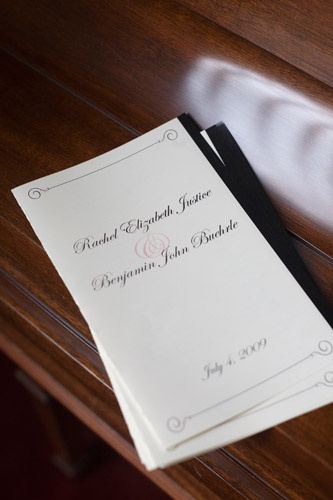 Rachel Elizabeth Justice
&
Benjamin John Buehrle
July 4, 2009